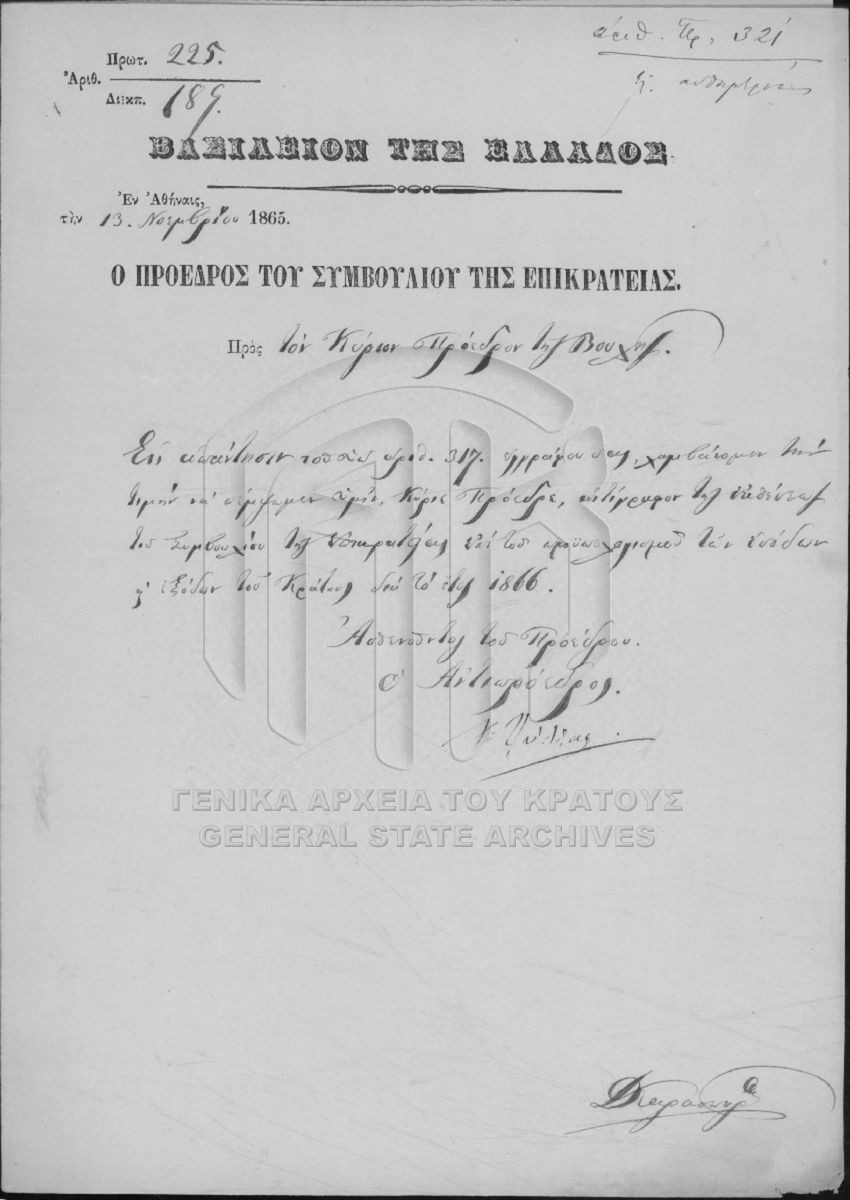 ἀριθ. Πρ. 321
Πρωτ. 225.
Ἀριθ.
Διεκπ. 189.
ΒΑΣΙΛΕΙΟΝ ΤΗΣ ΕΛΛΑΔΟΣ.
Ἐν Ἀθήναις,
τὴν 13. Νοεμβρίου 1865.
Ο ΠΡΟΕΔΡΟΣ ΤΟΥ ΣΥΜΒΟΥΛΙΟΥ ΤΗΣ ΕΠΙΚΡΑΤΕΙΑΣ.
Πρὸς τὸν Κύριον Πρόεδρον τῆς Βουλῆς.
Εἰς ἀπάντησιν τοῦ ὑπ' ἀριθ. 317. ἐγγράφου σας, λαμβάνομεν τὴν
τιμὴν νὰ πέμψωμεν ὑμῖν, Κύριε Πρόεδρε, ἀντίγραφον τῆς ἐκθέσεως
τοῦ Συμβουλίου τῆς Ἐπικρατείας ἐπὶ τοῦ προϋπολογισμοῦ τῶν ἐσόδων
κ' ἐξόδων τοῦ Κράτους διὰ τὸ ἔτος 1866.
Ἀσθενοῦντος τοῦ Προέδρου.
Ὁ Ἀντιπρόεδρος.
ΓΕΝΙΚΑ ΑΡΧΕΙΑ ΤΟΥ ΚΡΑΤΟΥΣ
GENERAL STATE ARCHIVES